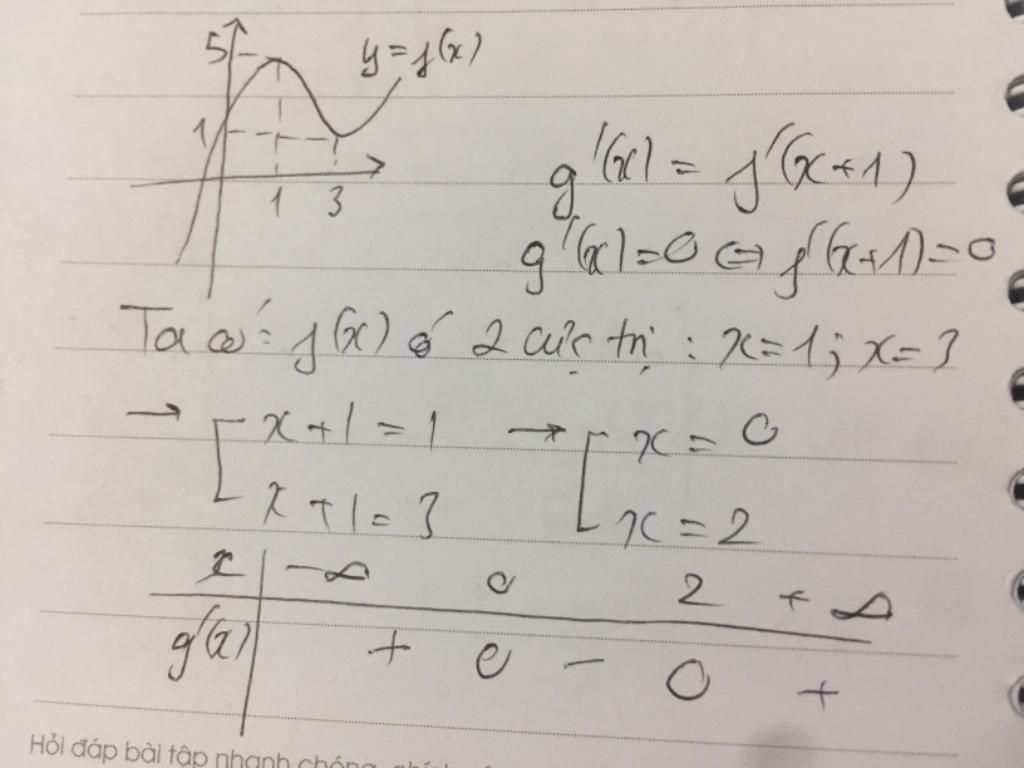 5
y = f(x)
1
1 3
g'(x) = f'(x+1)
g'(x) = 0 ⇔ f'(x+1) = 0
Ta có: f(x) có 2 cực trị : x = 1 ; x = 3
→ [ x + 1 = 1 → [ x = 0
x + 1 = 3 x = 2
x | -∞ 0 2 +∞
g'(x) | + 0 - 0 +
Hỏi đáp bài tập nhanh chóng,